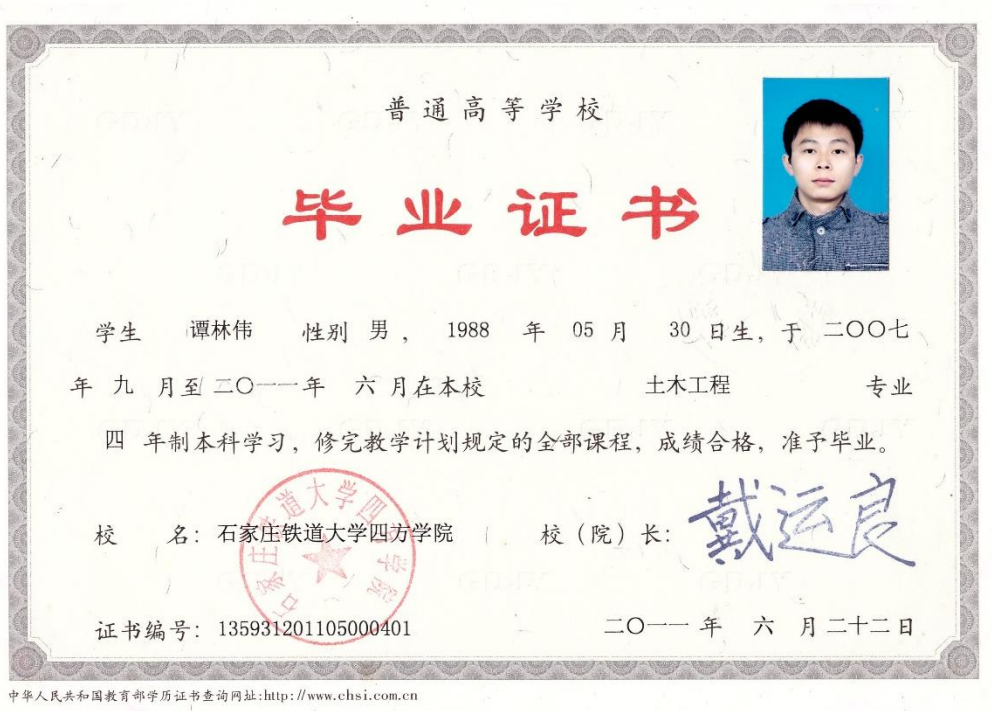 普通高等学校
毕业证书
学生 谭林伟 性别 男，1988 年 05 月 30 日生，于 二〇〇七
年 九 月至 二〇一一年 六 月在本校 土木工程 专业
四 年制本科学习，修完教学计划规定的全部课程，成绩合格，准予毕业。
校 名：石家庄铁道大学四方学院 校（院）长：戴运良
石家庄铁道大学四方学院
证书编号：135931201105000401 二〇一一 年 六 月二十二日
中华人民共和国教育部学历证书查询网址:http://www.chsi.com.cn